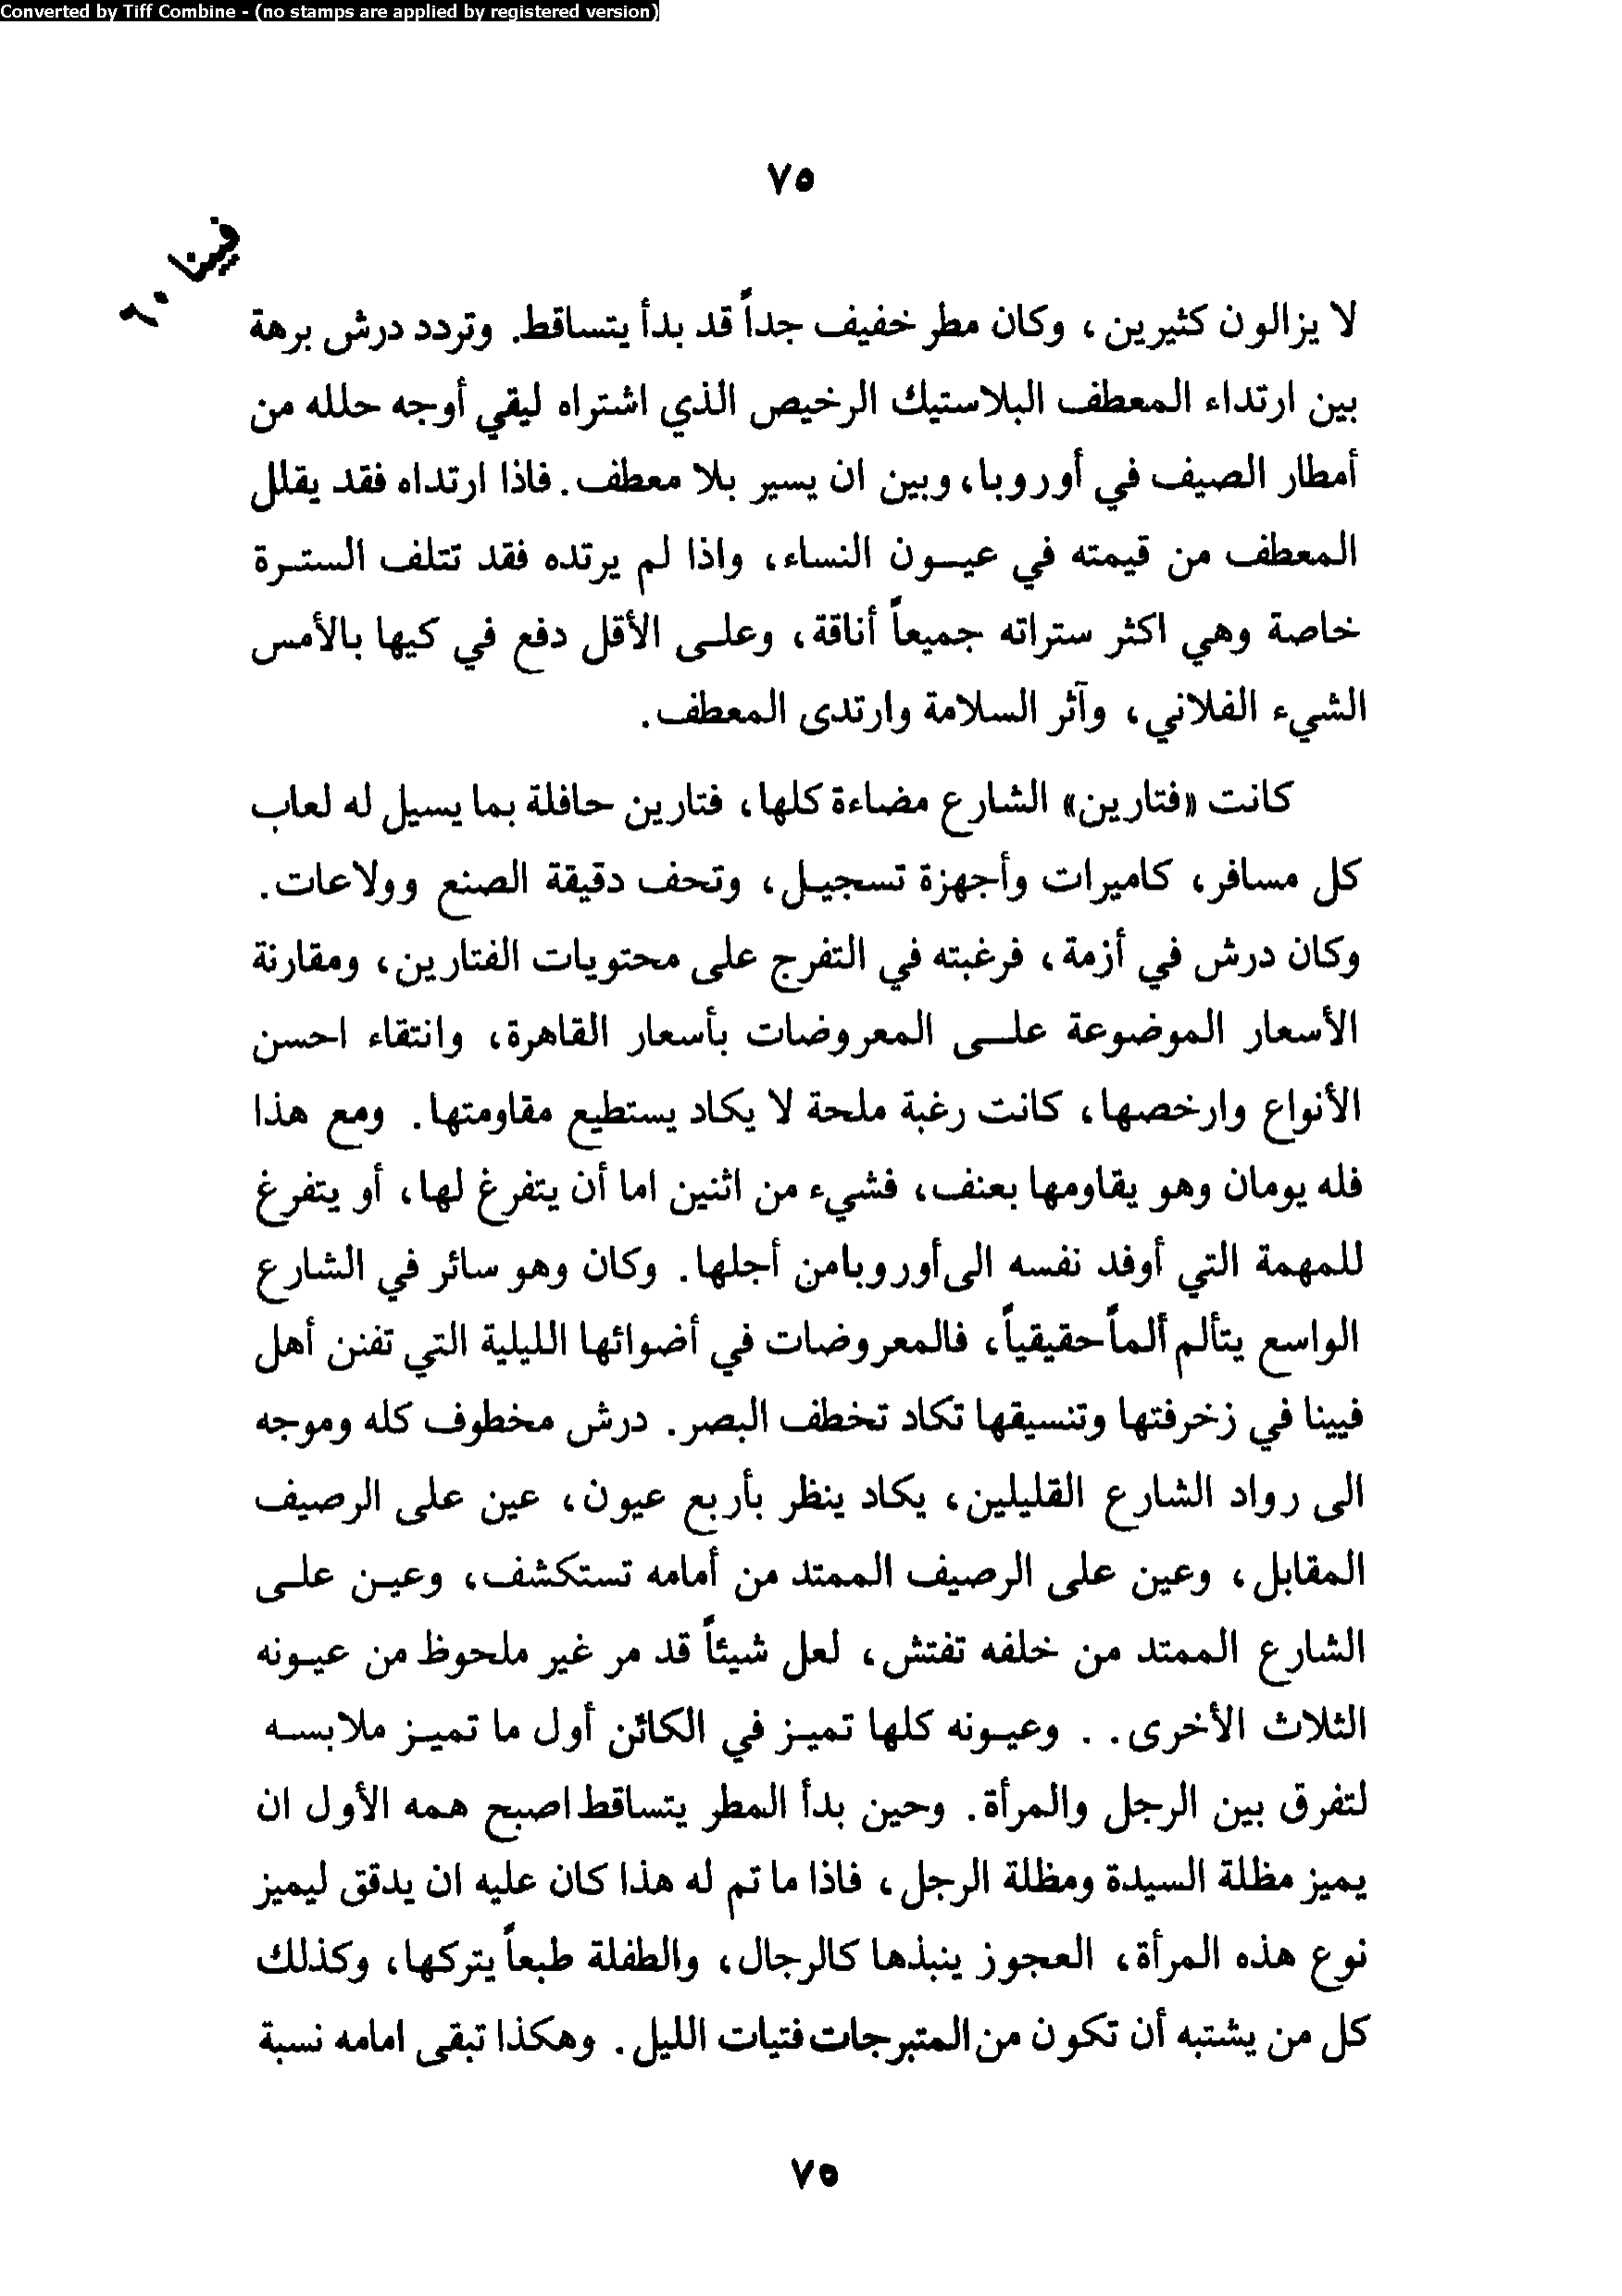 Converted by Tiff Combine - (no stamps are applied by registered version)
٧٥
فيينا ٦٠
لا يزالون كثيرين، وكان مطر خفيف جداً قد بدأ يتساقط. وتردد درش برهة
بين ارتداء المعطف البلاستيك الرخيص الذي اشتراه ليقي أوجه حلله من
أمطار الصيف في أوروبا، وبين ان يسير بلا معطف. فاذا ارتداه فقد يقلل
المعطف من قيمته في عيـون النساء، واذا لم يرتده فقد تتلف الستـرة
خاصة وهي اكثر ستراته جميعاً أناقة، وعلـى الأقل دفع في كيها بالأمس
الشيء الفلاني، وآثر السلامة وارتدى المعطف.
كانت «فتارين» الشارع مضاءة كلها، فتارين حافلة بما يسيل له لعاب
كل مسافر، كاميرات وأجهزة تسجيـل، وتحف دقيقة الصنع وولاعات.
وكان درش في أزمة، فرغبته في التفرج على محتويات الفتارين، ومقارنة
الأسعار الموضوعة علـى المعروضات بأسعار القاهرة، وانتقاء احسن
الأنواع وارخصها، كانت رغبة ملحة لا يكاد يستطيع مقاومتها. ومع هذا
فله يومان وهو يقاومها بعنف، فشيء من اثنين اما أن يتفرغ لها، أو يتفرغ
للمهمة التي أوفد نفسه الى أوروبا من أجلها. وكان وهو سائر في الشارع
الواسع يتألم ألماً حقيقياً، فالمعروضات في أضوائها الليلية التي تفنن أهل
فيينا في زخرفتها وتنسيقها تكاد تخطف البصر. درش مخطوف كله وموجه
الى رواد الشارع القليلين، يكاد ينظر بأربع عيون، عين على الرصيف
المقابل، وعين على الرصيف الممتد من أمامه تستكشف، وعيـن علـى
الشارع الممتد من خلفه تفتش، لعل شيئاً قد مر غير ملحوظ من عيـونه
الثلاث الأخرى. . وعيـونه كلها تميـز في الكائن أول ما تميـز ملابسـه
لتفرق بين الرجل والمرأة. وحين بدأ المطر يتساقط اصبح همه الأول ان
يميز مظلة السيدة ومظلة الرجل، فاذا ما تم له هذا كان عليه ان يدقق ليميز
نوع هذه المرأة، العجوز ينبذها كالرجال، والطفلة طبعاً يتركها، وكذلك
كل من يشتبه أن تكون من المتبرجات فتيات الليل. وهكذا تبقى امامه نسبة
٧٥